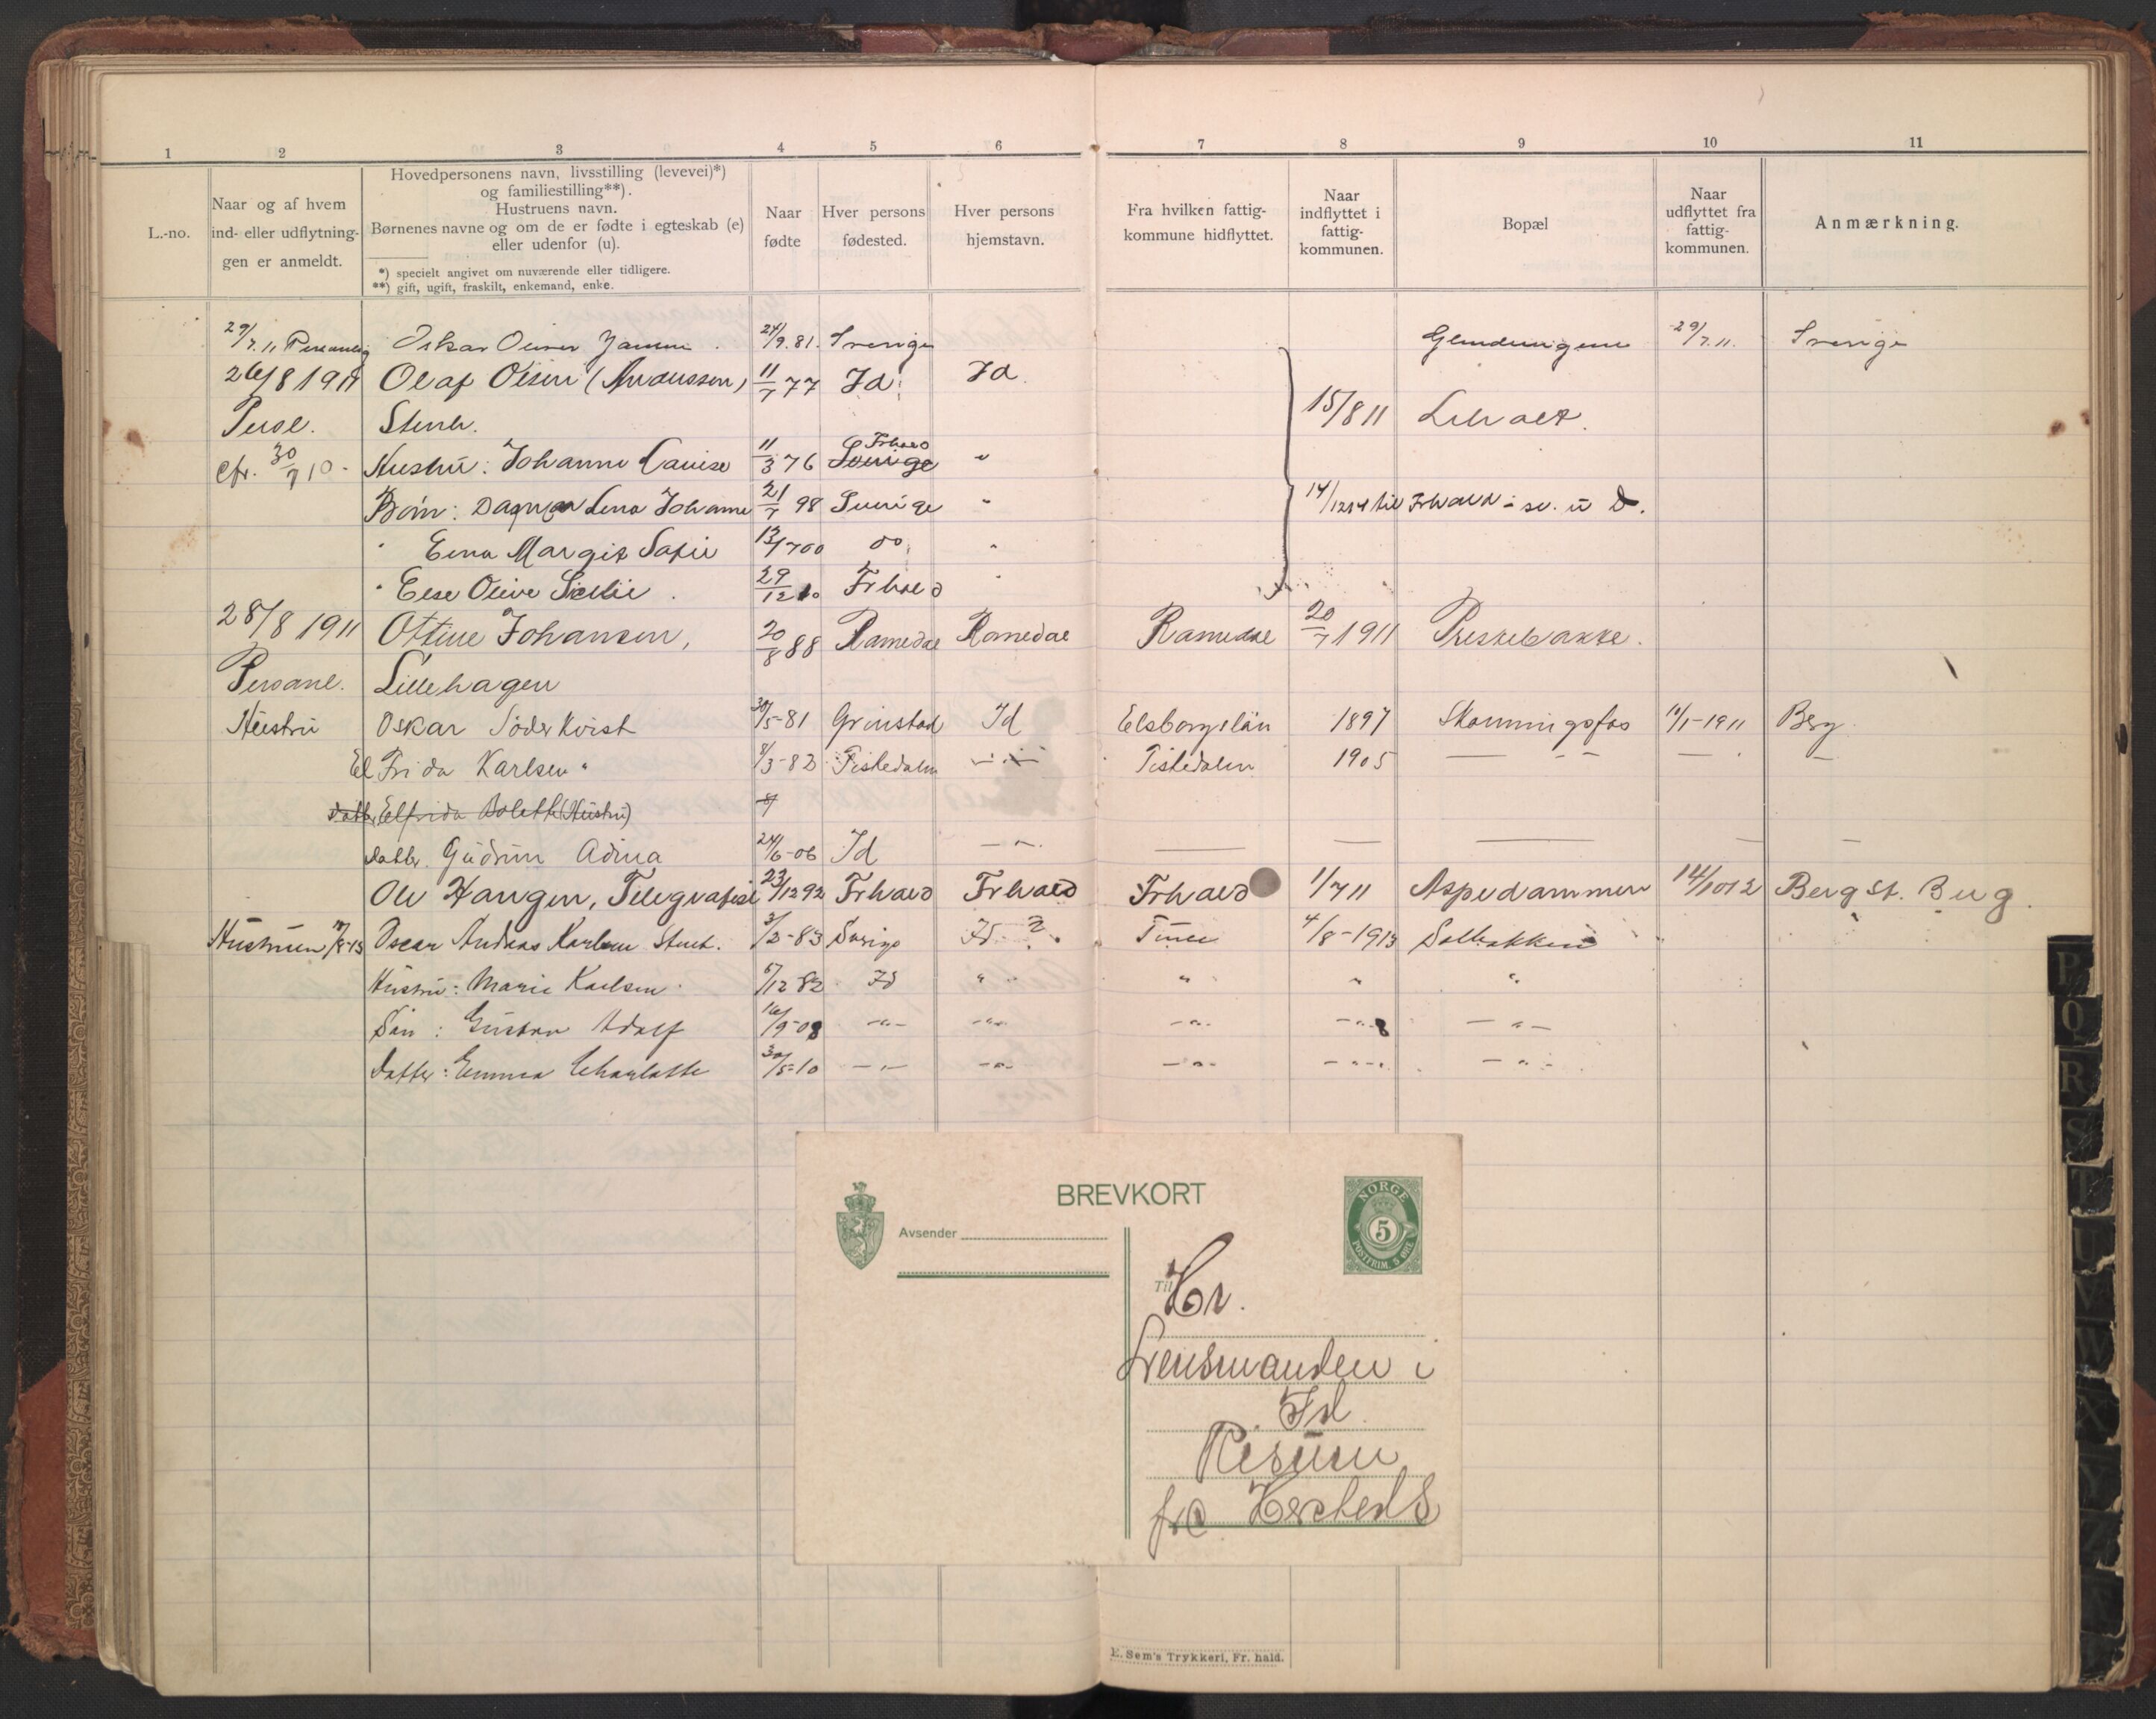 1 2 3 4 5 6 7 8 9 10 11
L.-no.
Naar og af hvem
ind- eller udflytnin-
gen er anmeldt.
Hovedpersonens navn, livsstilling (levevei)*)
og familiestilling**).
Hustruens navn.
Børnenes navne og om de er fødte i egteskab (e)
eller udenfor (u).
*) specielt angivet om nuværende eller tidligere.
**) gift, ugift, fraskilt, enkemand, enke.
Naar
fødte
Hver persons
fødested.
Hver persons
hjemstavn.
Fra hvilken fattig-
kommune hidflyttet.
Naar
indflyttet i
fattig-
kommunen.
Bopæl
Naar
udflyttet fra
fattig-
kommunen.
Anmærkning.
29/7.11 Personlig Oskar Oliver 24/9.81. Sverige 29/7.11. Sverige
26/8 1911 Olaf Olsen (Andersen) 11/7 77 Id Id.
Persl. Stenh. 15/8 11 Liholt.
Cfr. 30/7 10 - Hustru: Johanne Lauise 11/3 76 Frhald Sverige "
Børn: Dagmar Lena Johanne 21/7 98 Sverige " 14/12 14 til Frhald
" Erna Margit Sofie 13/7 00 do "
" Else Olive 29/12 10 Frhald "
28/8 1911 Ottine Johansen, 20/8 88 Ramedal Ramedal Ramedal 20/7 1911 Prestebakke.
Personl. Lillehagen
Hustru Oskar Söderkvist 30/5-81 Grinstad Id Elsborgslän 1897 Skonningsfos 11/1-1911 Berg
Elfrida Karlsen " 8/3-82 Tistedalen -"- Tistedalen 1905 — — —
Datter Elfrida Boleth (Hustru) 8/
Datter. Gudrun Adina 24/6-06 Id -"- — — — — —
Ole Haugen, Telegrafist 23/12 92 Frhald Frhald Frhald 1/7 11 Aspedammen 14/10 12 Berg st. Berg.
Hustruen /8-13 Oscar Andreas Karlsen Stenh. 3/2-83 Sverige Id ? Tune 4/8-1913 Solbakken
Hustru: Marie Karlsen 6/12 82 Id " " " "
Søn: Gustav Adolf 16/9-08 -"- -"- -"- -"- -"-
Datter: Emma Charlotte 30/5-10 -"- -"- -"- -"- -"-
BREVKORT
Avsender
NORGE
5
POSTFRIM. 5 ØRE
Til
Hr.
Lensmanden i
Id
Risum
pr. Fredriksh
E. Sem's Trykkeri, Fr. hald.
P
Q
R
S
T
U
V
W
X
Y
Z